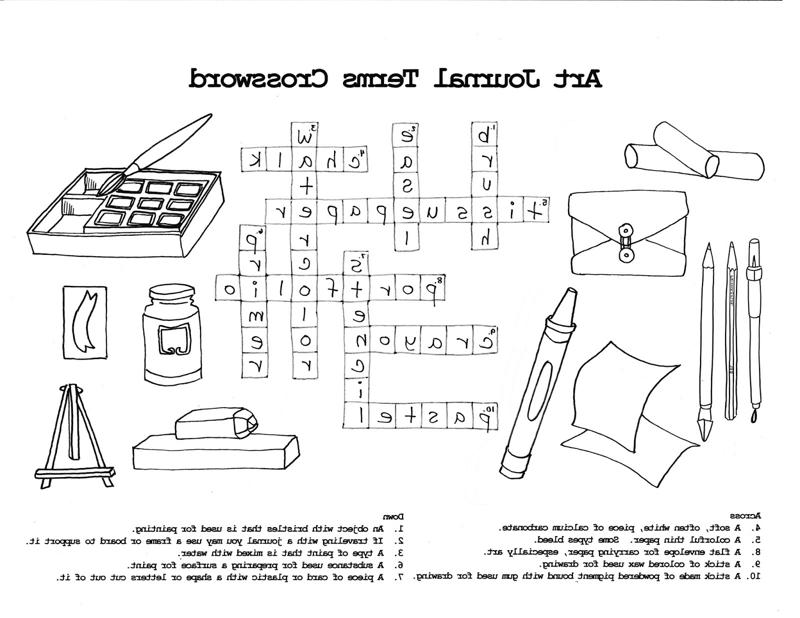 Art Journal Terms Crossword
1. brush
2. easel
3. watercolor
4. chalk
5. tissuepaper
6. primer
7. stencil
8. portfolio
9. crayon
10. pastel
Across
4. A soft, often white, piece of calcium carbonate.
5. A colorful thin paper. Some types bleed.
8. A flat envelope for carrying paper, especially art.
9. A stick of colored wax used for drawing.
10. A stick made of powdered pigment bound with gum used for drawing.
Down
1. An object with bristles that is used for painting.
2. If traveling with a journal you may use a frame or board to support it.
3. A type of paint that is mixed with water.
6. A substance used for preparing a surface for paint.
7. A piece of card or plastic with a shape or letters cut out of it.